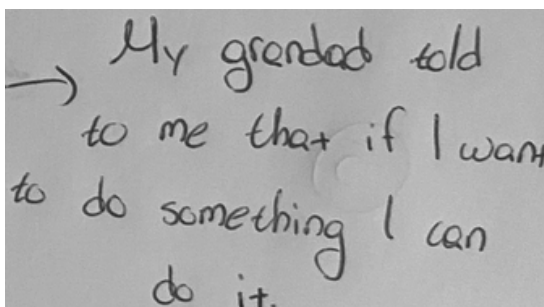 My grandad told
to me that if I want
to do something I can
do it.